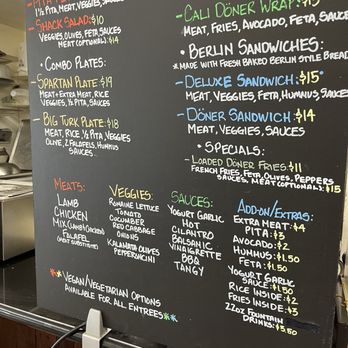 1 ½ PITA, MEAT, VEGGIES, SAUCES
- SHACK SALAD: $10
VEGGIES, OLIVES, FETA, SAUCES
MEAT (OPTIONAL): $14
• COMBO PLATES:
- SPARTAN PLATE: $19
MEAT + EXTRA MEAT, RICE
VEGGIES, ½ PITA, SAUCES
- BIG TURK PLATE: $18
MEAT, RICE, ½ PITA, VEGGIES
OLIVE, 2 FALAFELS, HUMMUS
SAUCES
- CALI DÖNER WRAP:
MEAT, FRIES, AVOCADO, FETA, SAUCES
• BERLIN SANDWICHES:
*MADE WITH FRESH BAKED BERLIN STYLE BREAD
- DELUXE SANDWICH: $15
MEAT, VEGGIES, FETA, HUMMUS, SAUCES
- DÖNER SANDWICH: $14
MEAT, VEGGIES, SAUCES
• SPECIALS:
- LOADED DÖNER FRIES: $11
FRENCH FRIES, FETA, OLIVES, PEPPERS
SAUCES, MEAT (OPTIONAL): $15
MEATS:
LAMB
CHICKEN
MIX (LAMB/CHICKEN)
FALAFEL
(MEAT SUBSTITUTE)
VEGGIES:
ROMAINE LETTUCE
TOMATO
CUCUMBER
RED CABBAGE
ONIONS
KALAMATA OLIVES
PEPPERONCINI
SAUCES:
YOGURT GARLIC
HOT
CILANTRO
BALSAMIC
VINAIGRETTE
BBQ
TANGY
ADD-ON/EXTRAS:
EXTRA MEAT: $4
PITA: $3
AVOCADO: $2
HUMMUS: $1.50
FETA: $1.50
YOGURT GARLIC
SAUCE: $1.50
RICE INSIDE: $2
FRIES INSIDE: $3
22OZ FOUNTAIN
DRINKS: $3.50
**VEGAN/VEGETARIAN OPTIONS
AVAILABLE FOR ALL ENTREES**